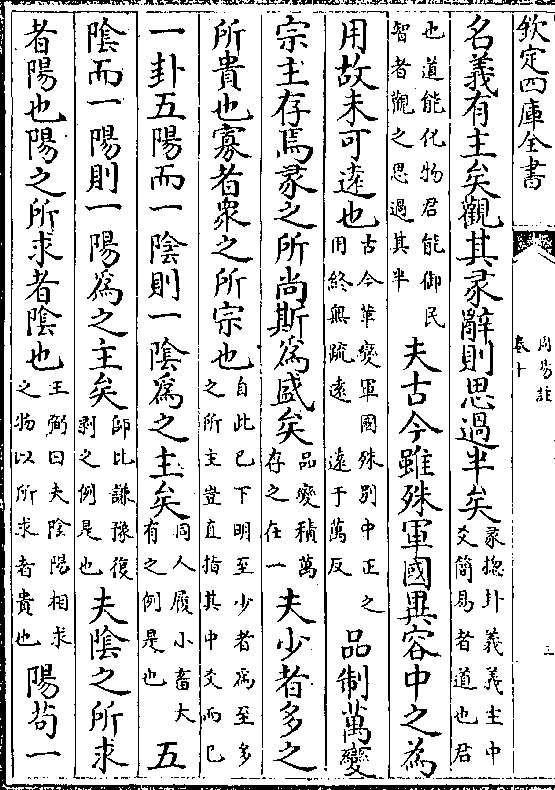 欽定四庫全書
周易註
卷十
三
名義有主矣觀其彖辭則思過半矣
彖揔卦義義主中
爻簡易者道也君
也道能化物君能御民
智者觀之思過其半
夫古今雖殊軍國異容中之為
用故未可遠也
古今革變軍國殊别中正之
用終無疏遠 遠于萬反
品制萬變
宗主存焉彖之所尚斯為盛矣
品變積萬
存之在一
夫少者多之
所貴也寡者衆之所宗也
自此已下明至少者為至多
之所主豈直指其中爻而已
一卦五陽而一陰則一陰為之主矣
同人履小畜大
有之例是也
五
陰而一陽則一陽為之主矣
師比謙豫復
剥之例是也
夫陰之所求
者陽也陽之所求者陰也
王弼曰夫陰陽相求
之物以所求者貴也
陽苟一